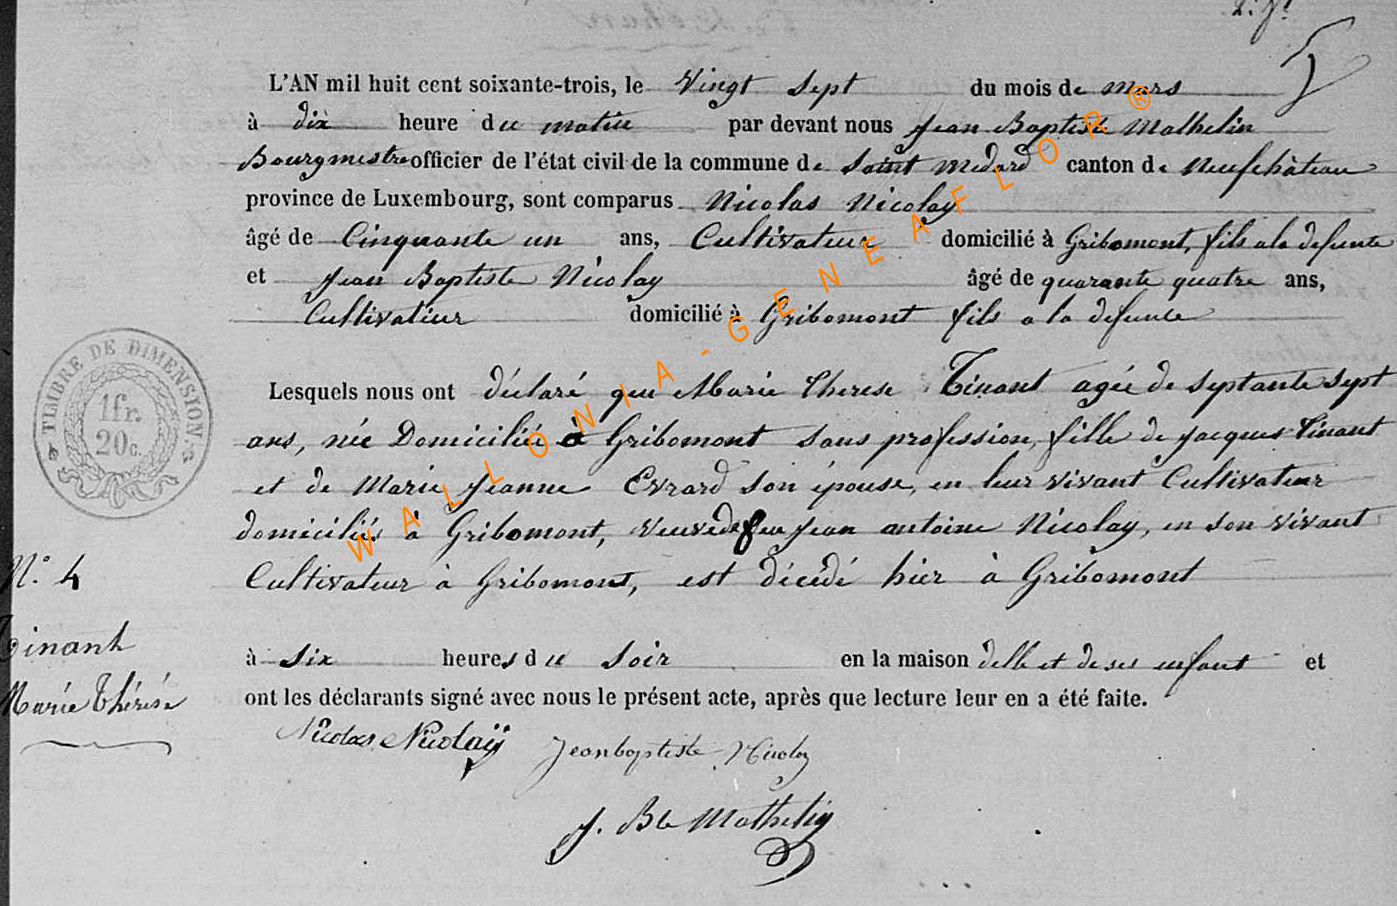 L'AN mil huit cent soixante-trois, le Vingt Sept du mois de mars
à dix heure du matin par devant nous Jean Baptiste Mathelin
Bourgmestre officier de l'état civil de la commune de Saint Medard canton de Neufchâteau
province de Luxembourg, sont comparus Nicolas Nicolay
âgé de Cinquante un ans, Cultivateur domicilié à Gribomont, fils a la defunte
et Jean Baptiste Nicolay âgé de quarante quatre ans,
Cultivateur domicilié à Gribomont fils a la defunte
Lesquels nous ont déclaré que Marie Therese Tinant agée de septante sept
ans, née Domiciliée à Gribomont sans profession, fille de Jacques Tinant
et de Marie Jeanne Evrard son épouse, en leur vivant Cultivateur
domiciliés à Gribomont, veuve de feu Jean antoine Nicolay, en son vivant
Cultivateur à Gribomont, est décédé hier à Gribomont
à Six heures du Soir en la maison d'elle et de ses enfant et
ont les déclarants signé avec nous le présent acte, après que lecture leur en a été faite.
Nicolas Nicolaÿ Jeanbaptiste Nicolay
J. Bte Mathelin
TIMBRE DE DIMENSION.
1fr.
20c.
N.° 4
Tinant
Marie Thérése
WALLONIA-GENEAFLOR®